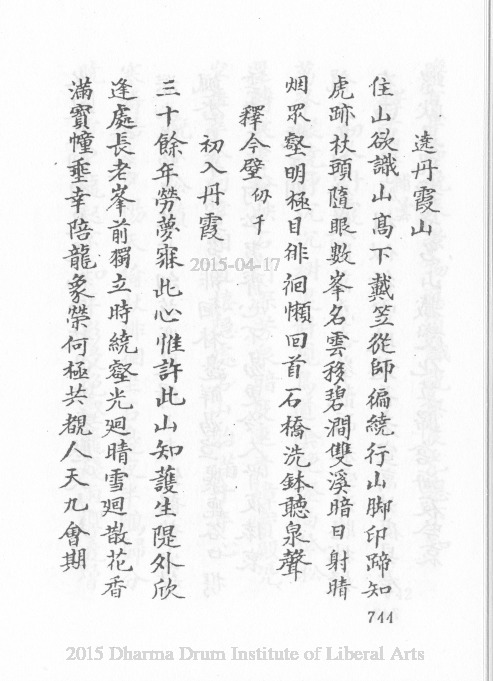 遶丹霞山
住山欲識山高下戴笠從師徧繞行山脚印蹄知
虎跡杖頭隨眼數峯名雲移碧澗雙溪暗日射晴
烟眾壑明極目徘徊懶回首石橋洗鉢聽泉聲
釋今壁仞千
初入丹霞
三十餘年勞夢寐此心惟許此山知護生隄外欣
逢處長老峯前獨立時繞壑光迴晴雪迴散花香
滿寶幢垂幸陪龍象榮何極共覩人天九會期
744
2015-04-17
2015 Dharma Drum Institute of Liberal Arts